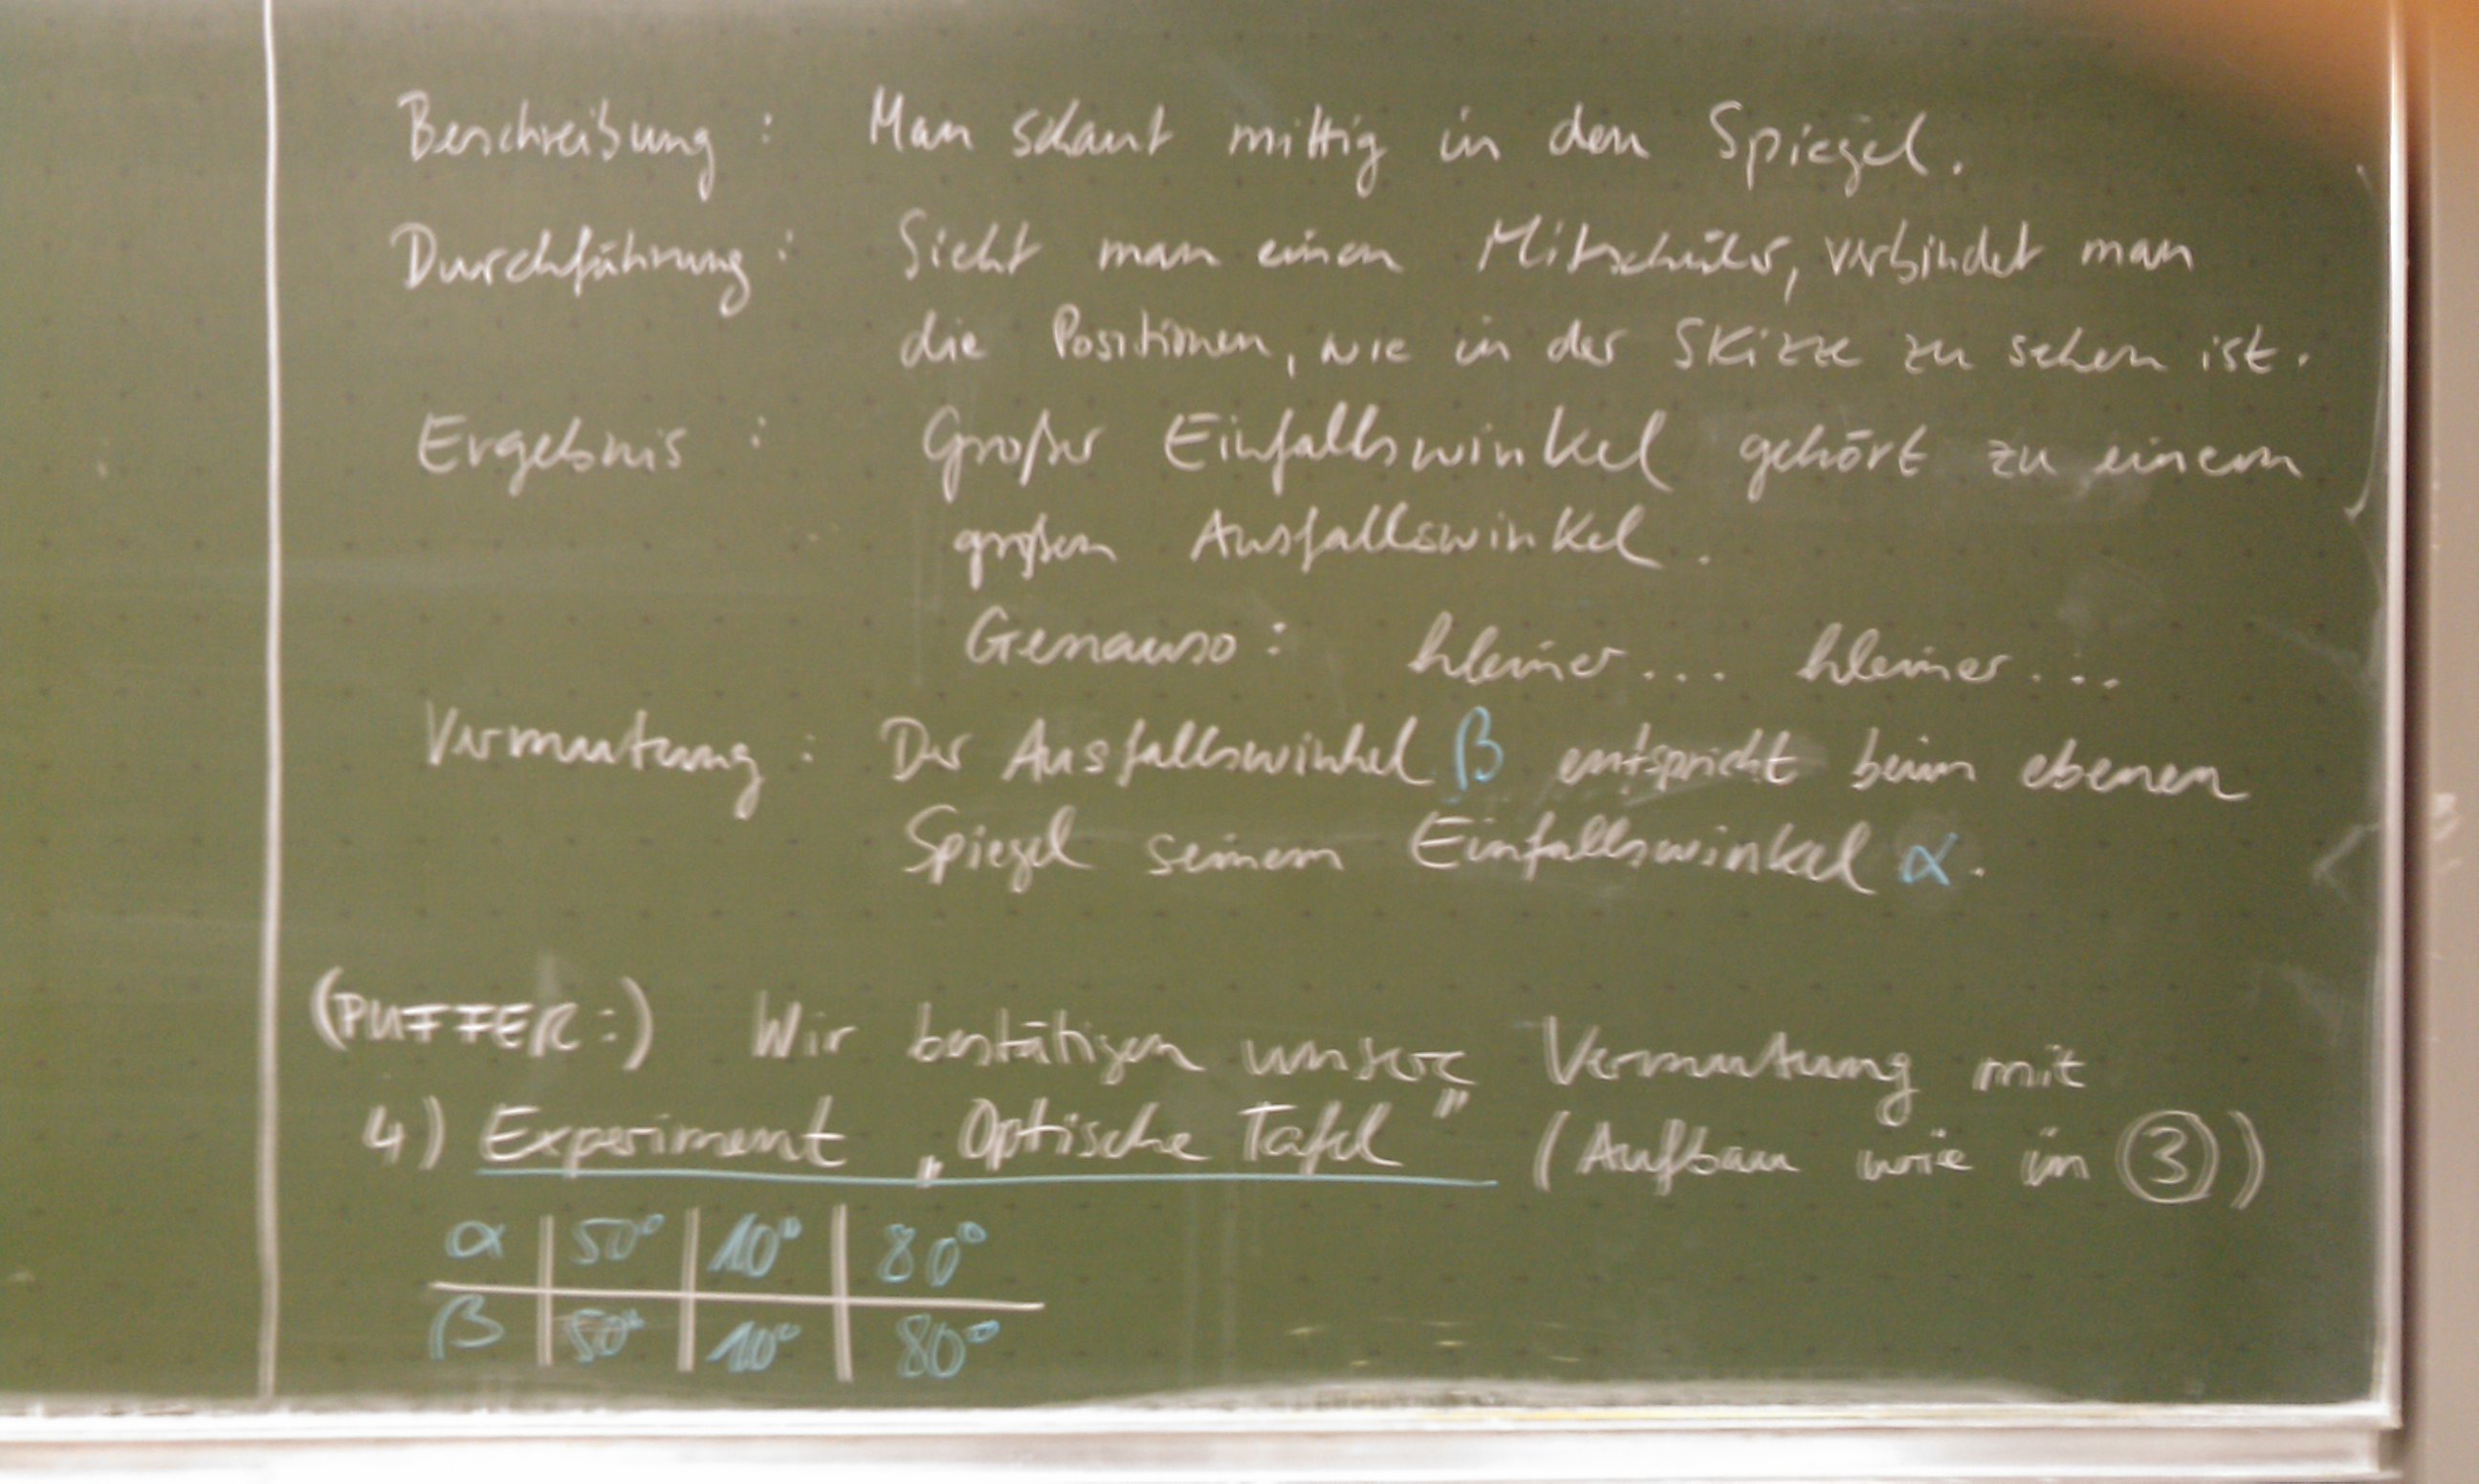 Beschreibung : Man schaut mittig in den Spiegel.
Durchführung : Sieht man einen Mitschüler, verbindet man
die Positionen, wie in der Skizze zu sehen ist.
Ergebnis : Großer Einfallswinkel gehört zu einem
großen Ausfallswinkel.
Genauso : kleiner ... kleiner ...
Vermutung : Der Ausfallswinkel β entspricht beim ebenen
Spiegel seinem Einfallswinkel α.
(PUFFER:) Wir bestätigen unsere Vermutung mit
4) Experiment „Optische Tafel" (Aufbau wie in ③)
α | 50° | 10° | 80°
β | 50° | 10° | 80°